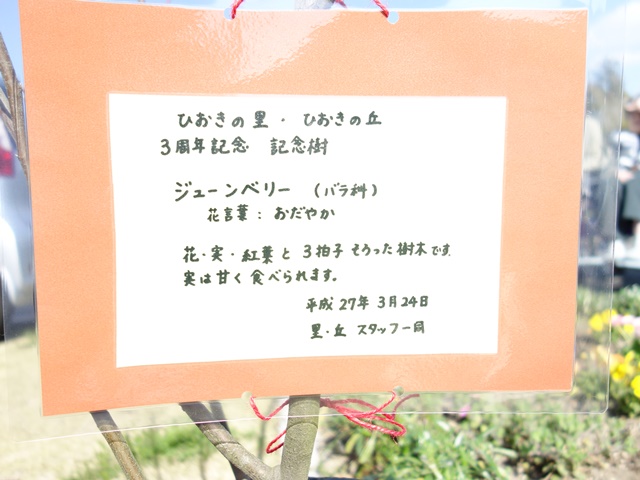 ひおきの里・ひおきの丘
3周年記念 記念樹
ジューンベリー (バラ科)
花言葉:おだやか
花・実・紅葉と3拍子そろった樹木です。
実は甘く食べられます。
平成27年3月24日
里・丘 スタッフ一同